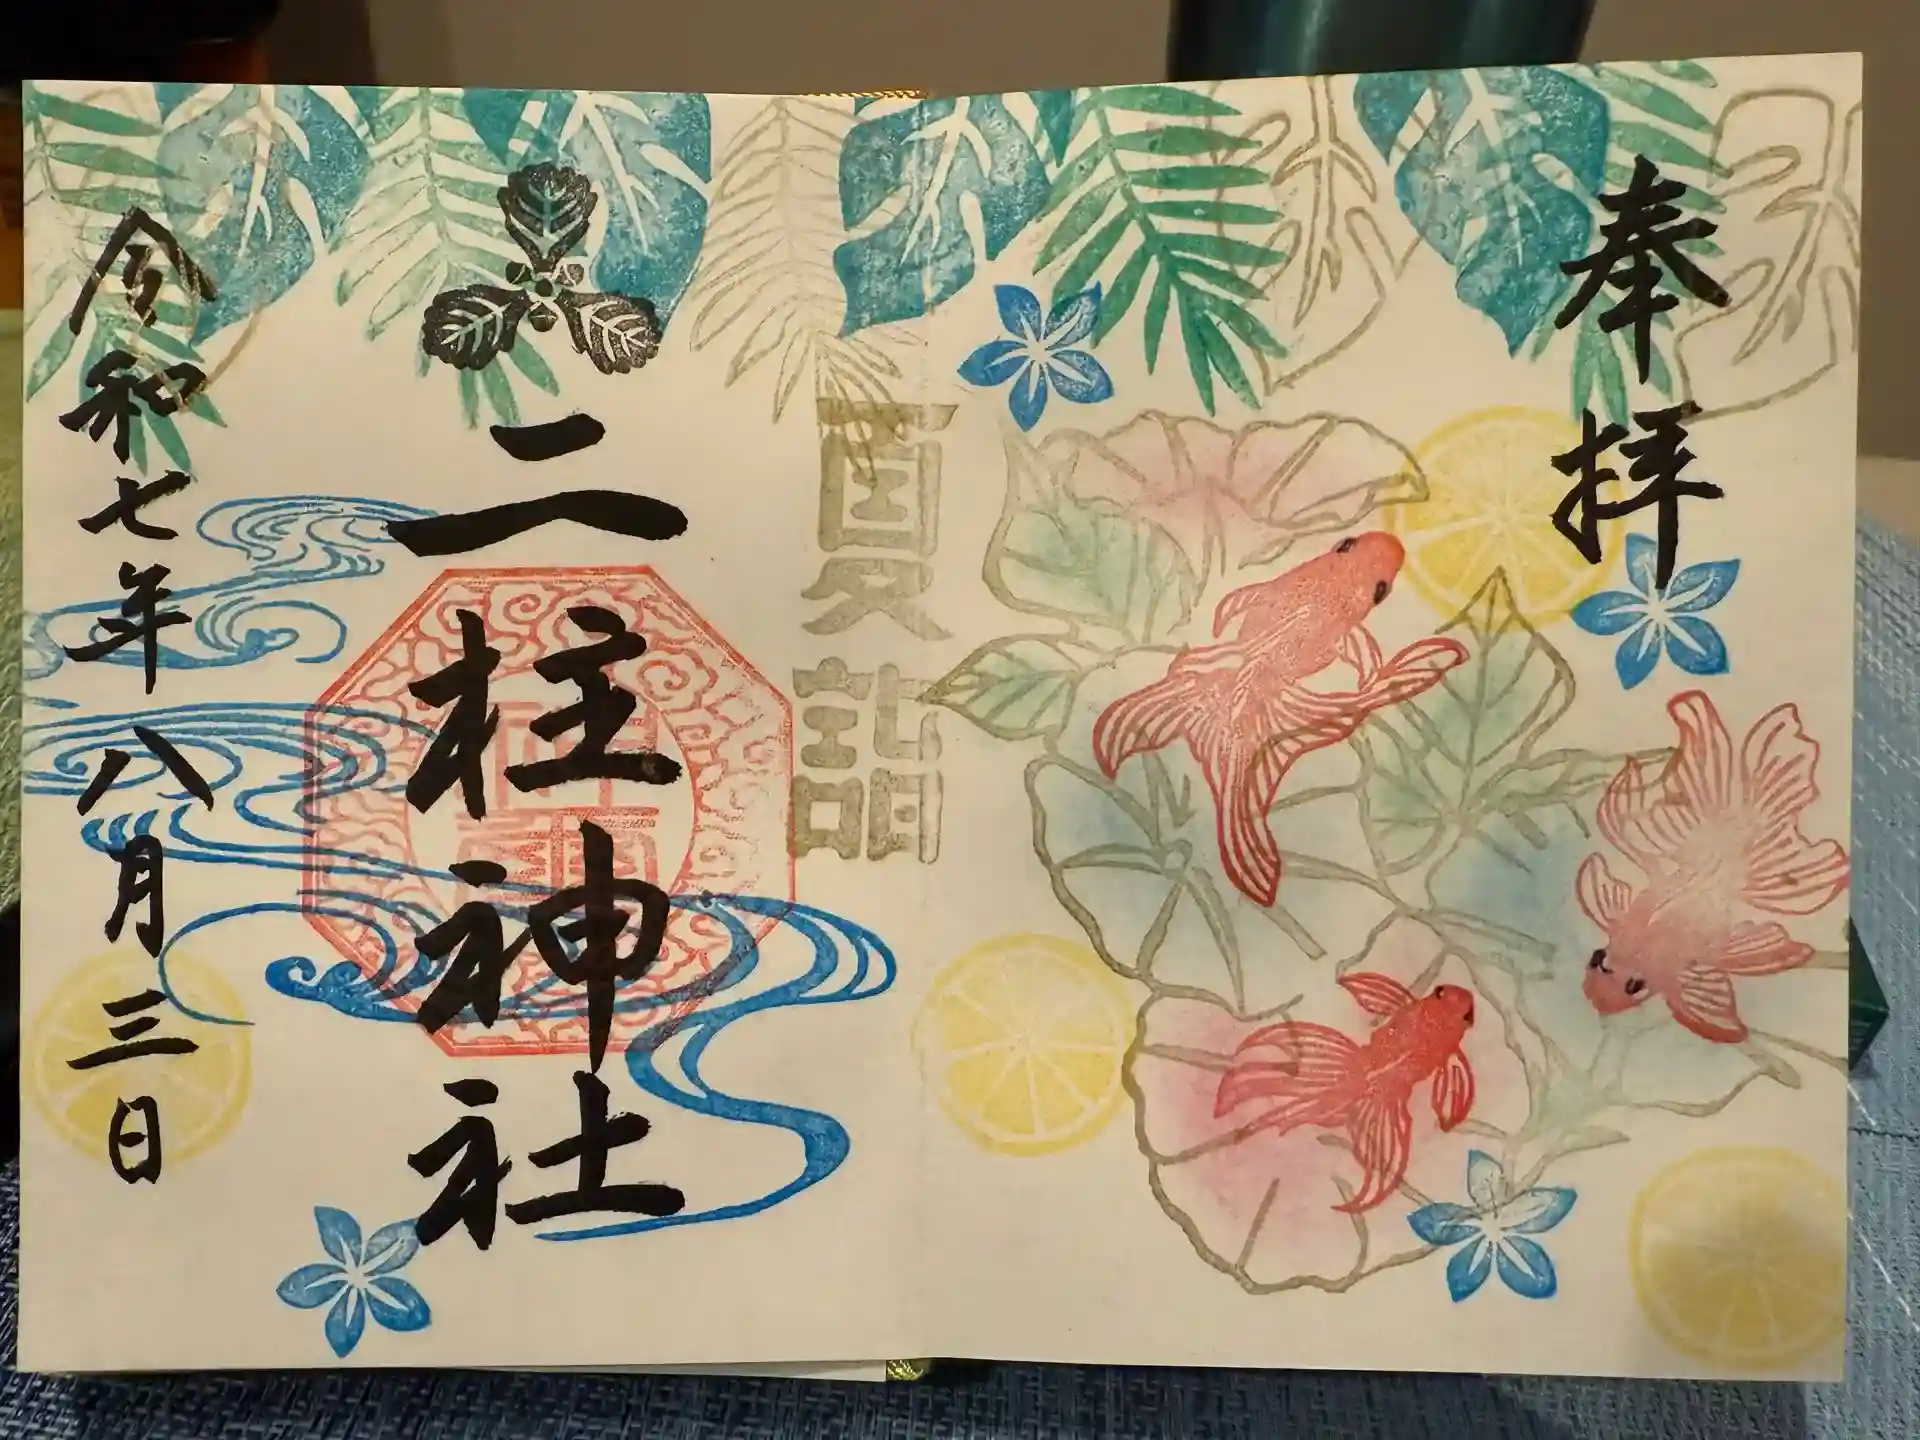 奉拝
夏詣
二柱神社
令和七年八月三日